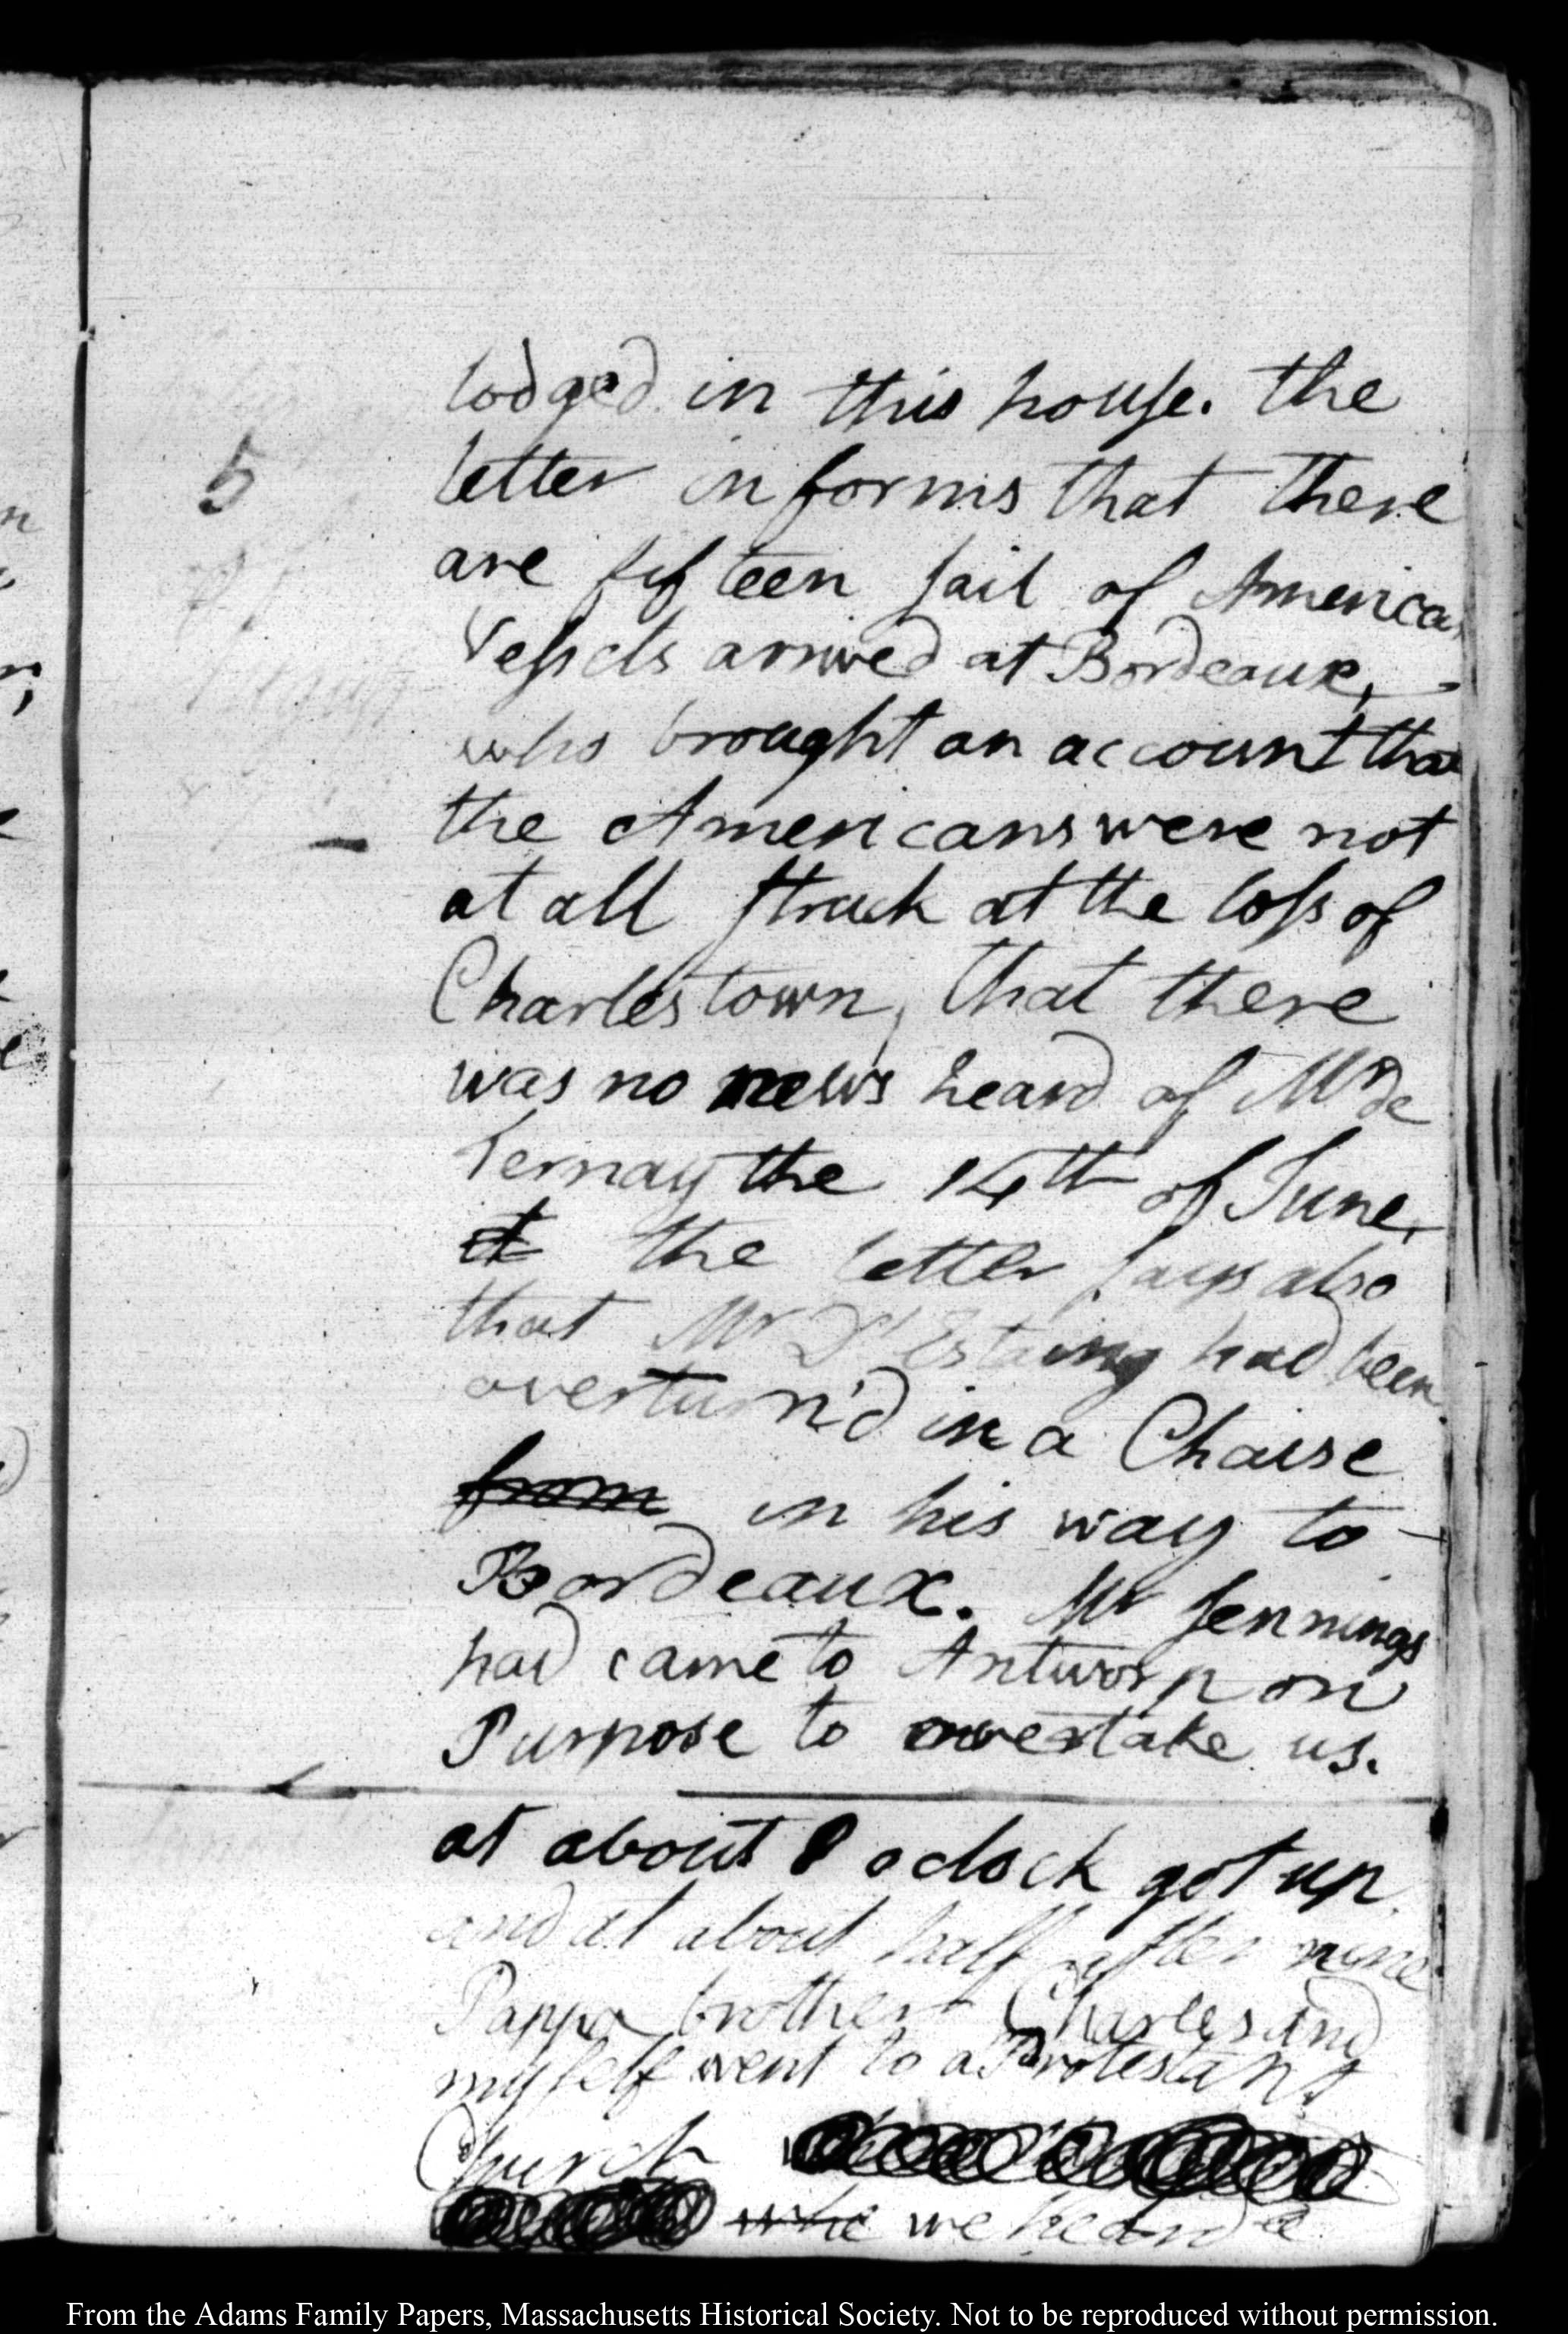 lodged in this house. the
5
letter informs that there
are fifteen sail of America
Vessels arrived at Bordeaux,
who brought an account that
the Americans were not
at all struck at the loss of
Charlestown, that there
was no news heard of Mr de
Ternay the 14th of June,
it the letter says also
that Mr D'Estaing had been
overturn'd in a Chaise
from in his way to
Bordeaux. Mr Jennings
had came to Antworp on
Purpose to overtake us.
at about 8 oclock got up
and at about half after nine
Pappa brother Charles and
myself went to a Protestant
Church
whe we heard a
From the Adams Family Papers, Massachusetts Historical Society. Not to be reproduced without permission.